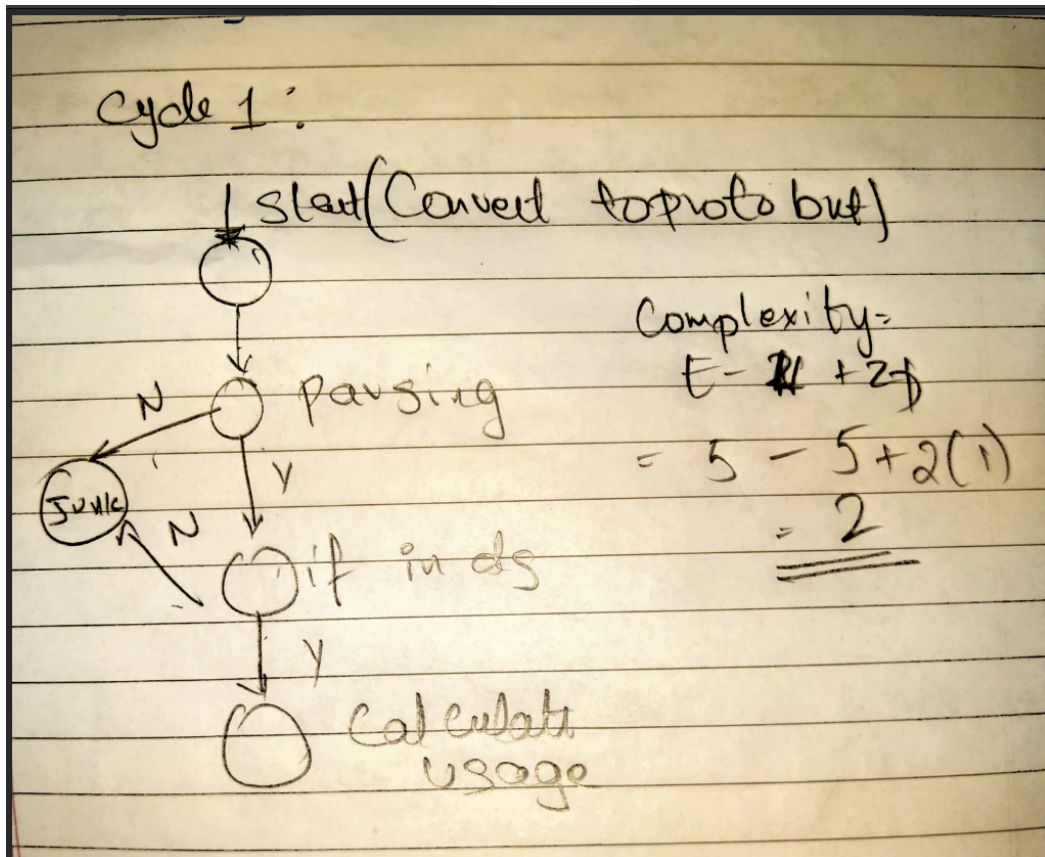 Cycle 1:
start (Convert to proto buf)
Complexity =
E - N + 2P
N
parsing
= 5 - 5 + 2(1)
Y
Junk
N
= 2
if in ds
Y
Calculate
usage